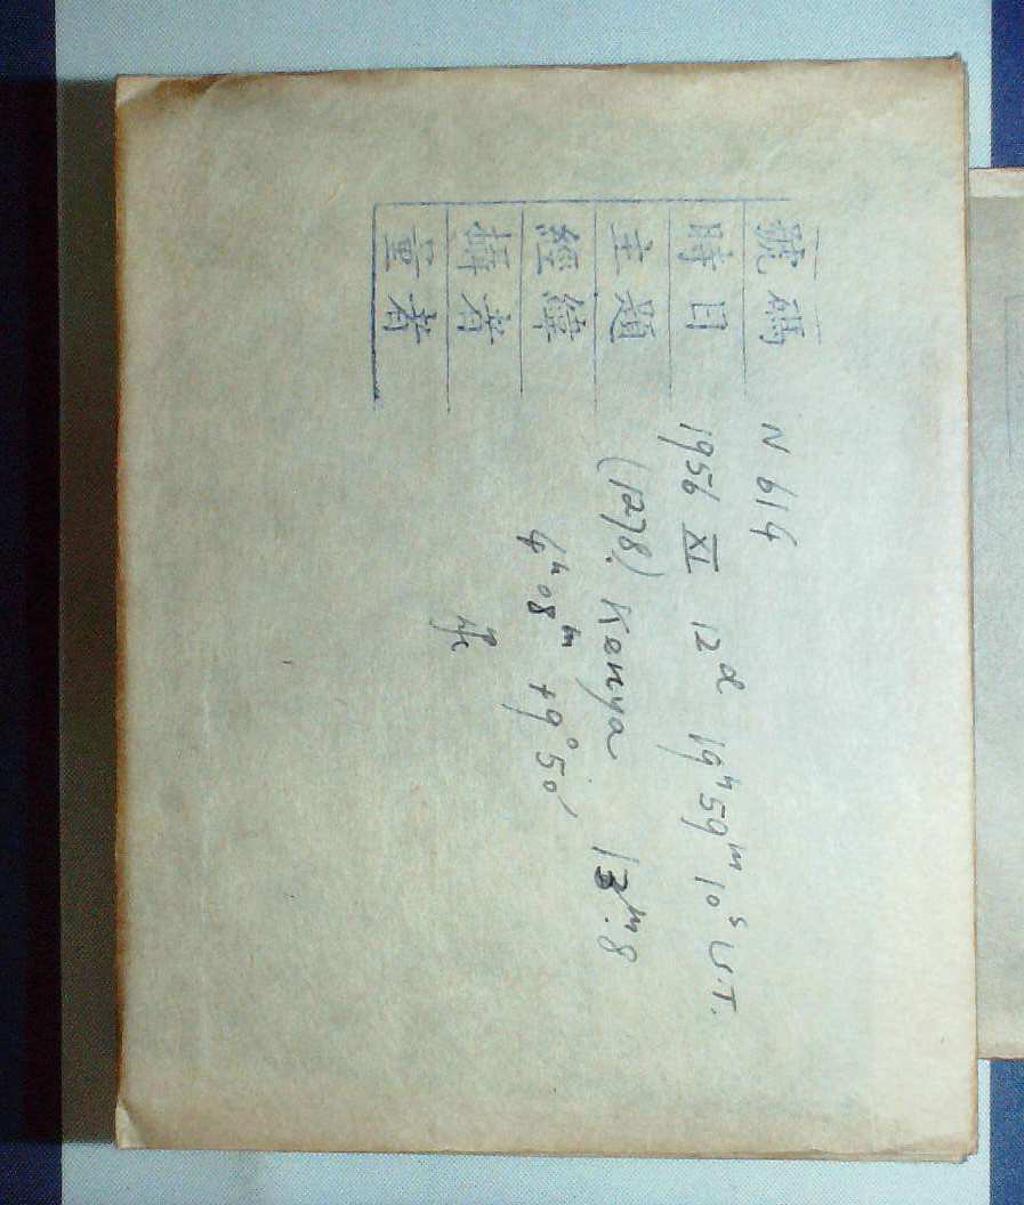 號碼 N 614
時日 1956 XI 12d 19h 59m 10s U.T.
主題 (1278) Kenya 13m.8
經緯 4h 08m +9° 50′
攝者
量者